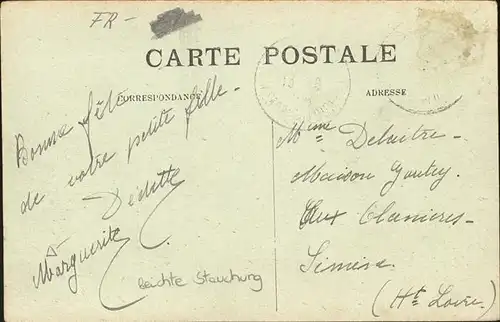 FR-
CARTE POSTALE
CORRESPONDANCE
ADRESSE
Bonne fête
de votre petite fille-
Dédette
Marguerite
Leichte Stauchung
Mme Delaitre-
Maison
Aux
(Hte Loire.)